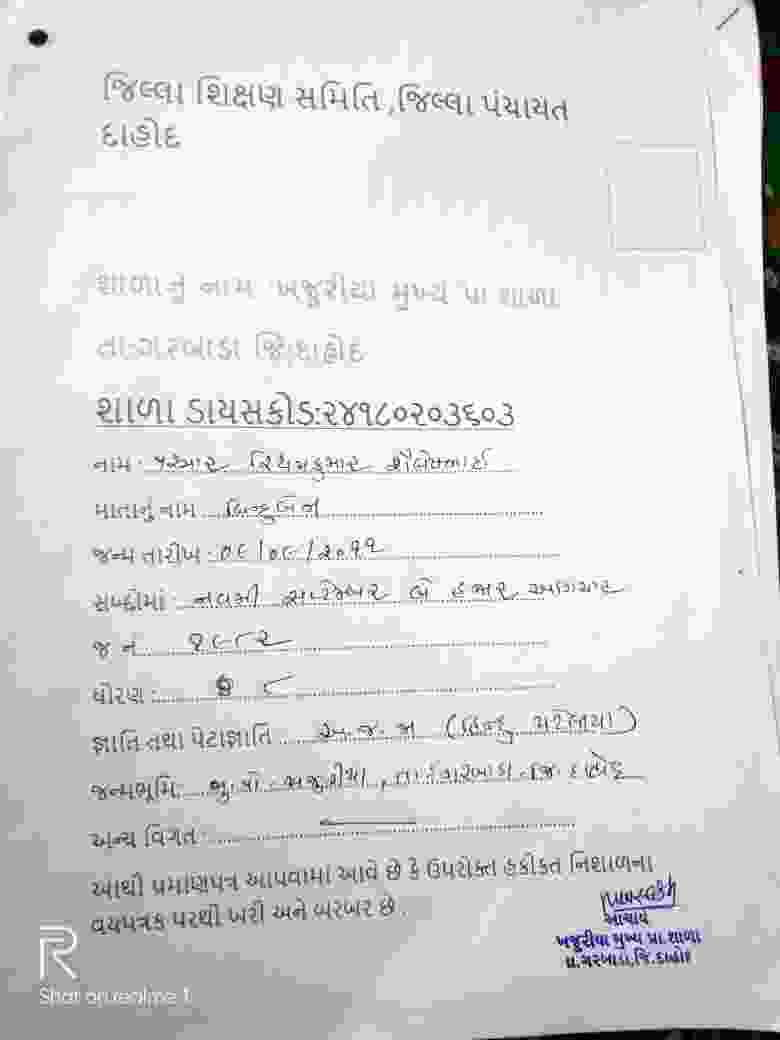 જિલ્લા શિક્ષણ સમિતિ ,જિલ્લા પંચાયત
દાહોદ
શાળાનું નામ ખજુરીયા મુખ્ય પ્રા શાળા
તા:ગરબાડા જિ:દાહોદ
શાળા ડાયસકોડ:૨૪૧૮૦૨૦૩૬૦૩
નામ : પરમાર
માતાનું નામ
જન્મ તારીખ : ૦૯/૦૯/૨૦૧૧
સબ્દોમાં : નવમી સપ્ટેમ્બર બે હજાર અગિયાર
જ નં ૧૯૮૨
ધોરણ : ૮
જ્ઞાતિ તથા પેટાજ્ઞાતિ અ.જ.જા (હિન્દુ પટેલિયા)
જન્મભૂમિ: મુ.પો. ખજુરીયા, તા. ગરબાડા જિ. દાહોદ
અન્ય વિગત
આથી પ્રમાણપત્ર આપવામાં આવે છે કે ઉપરોક્ત હકીકત નિશાળના
વયપત્રક પરથી ખરી અને બરબર છે .
આચાર્ય
ખજુરીયા મુખ્ય પ્રા.શાળા
તા.ગરબાડા,જિ.દાહોદ
R
Shot on realme 1